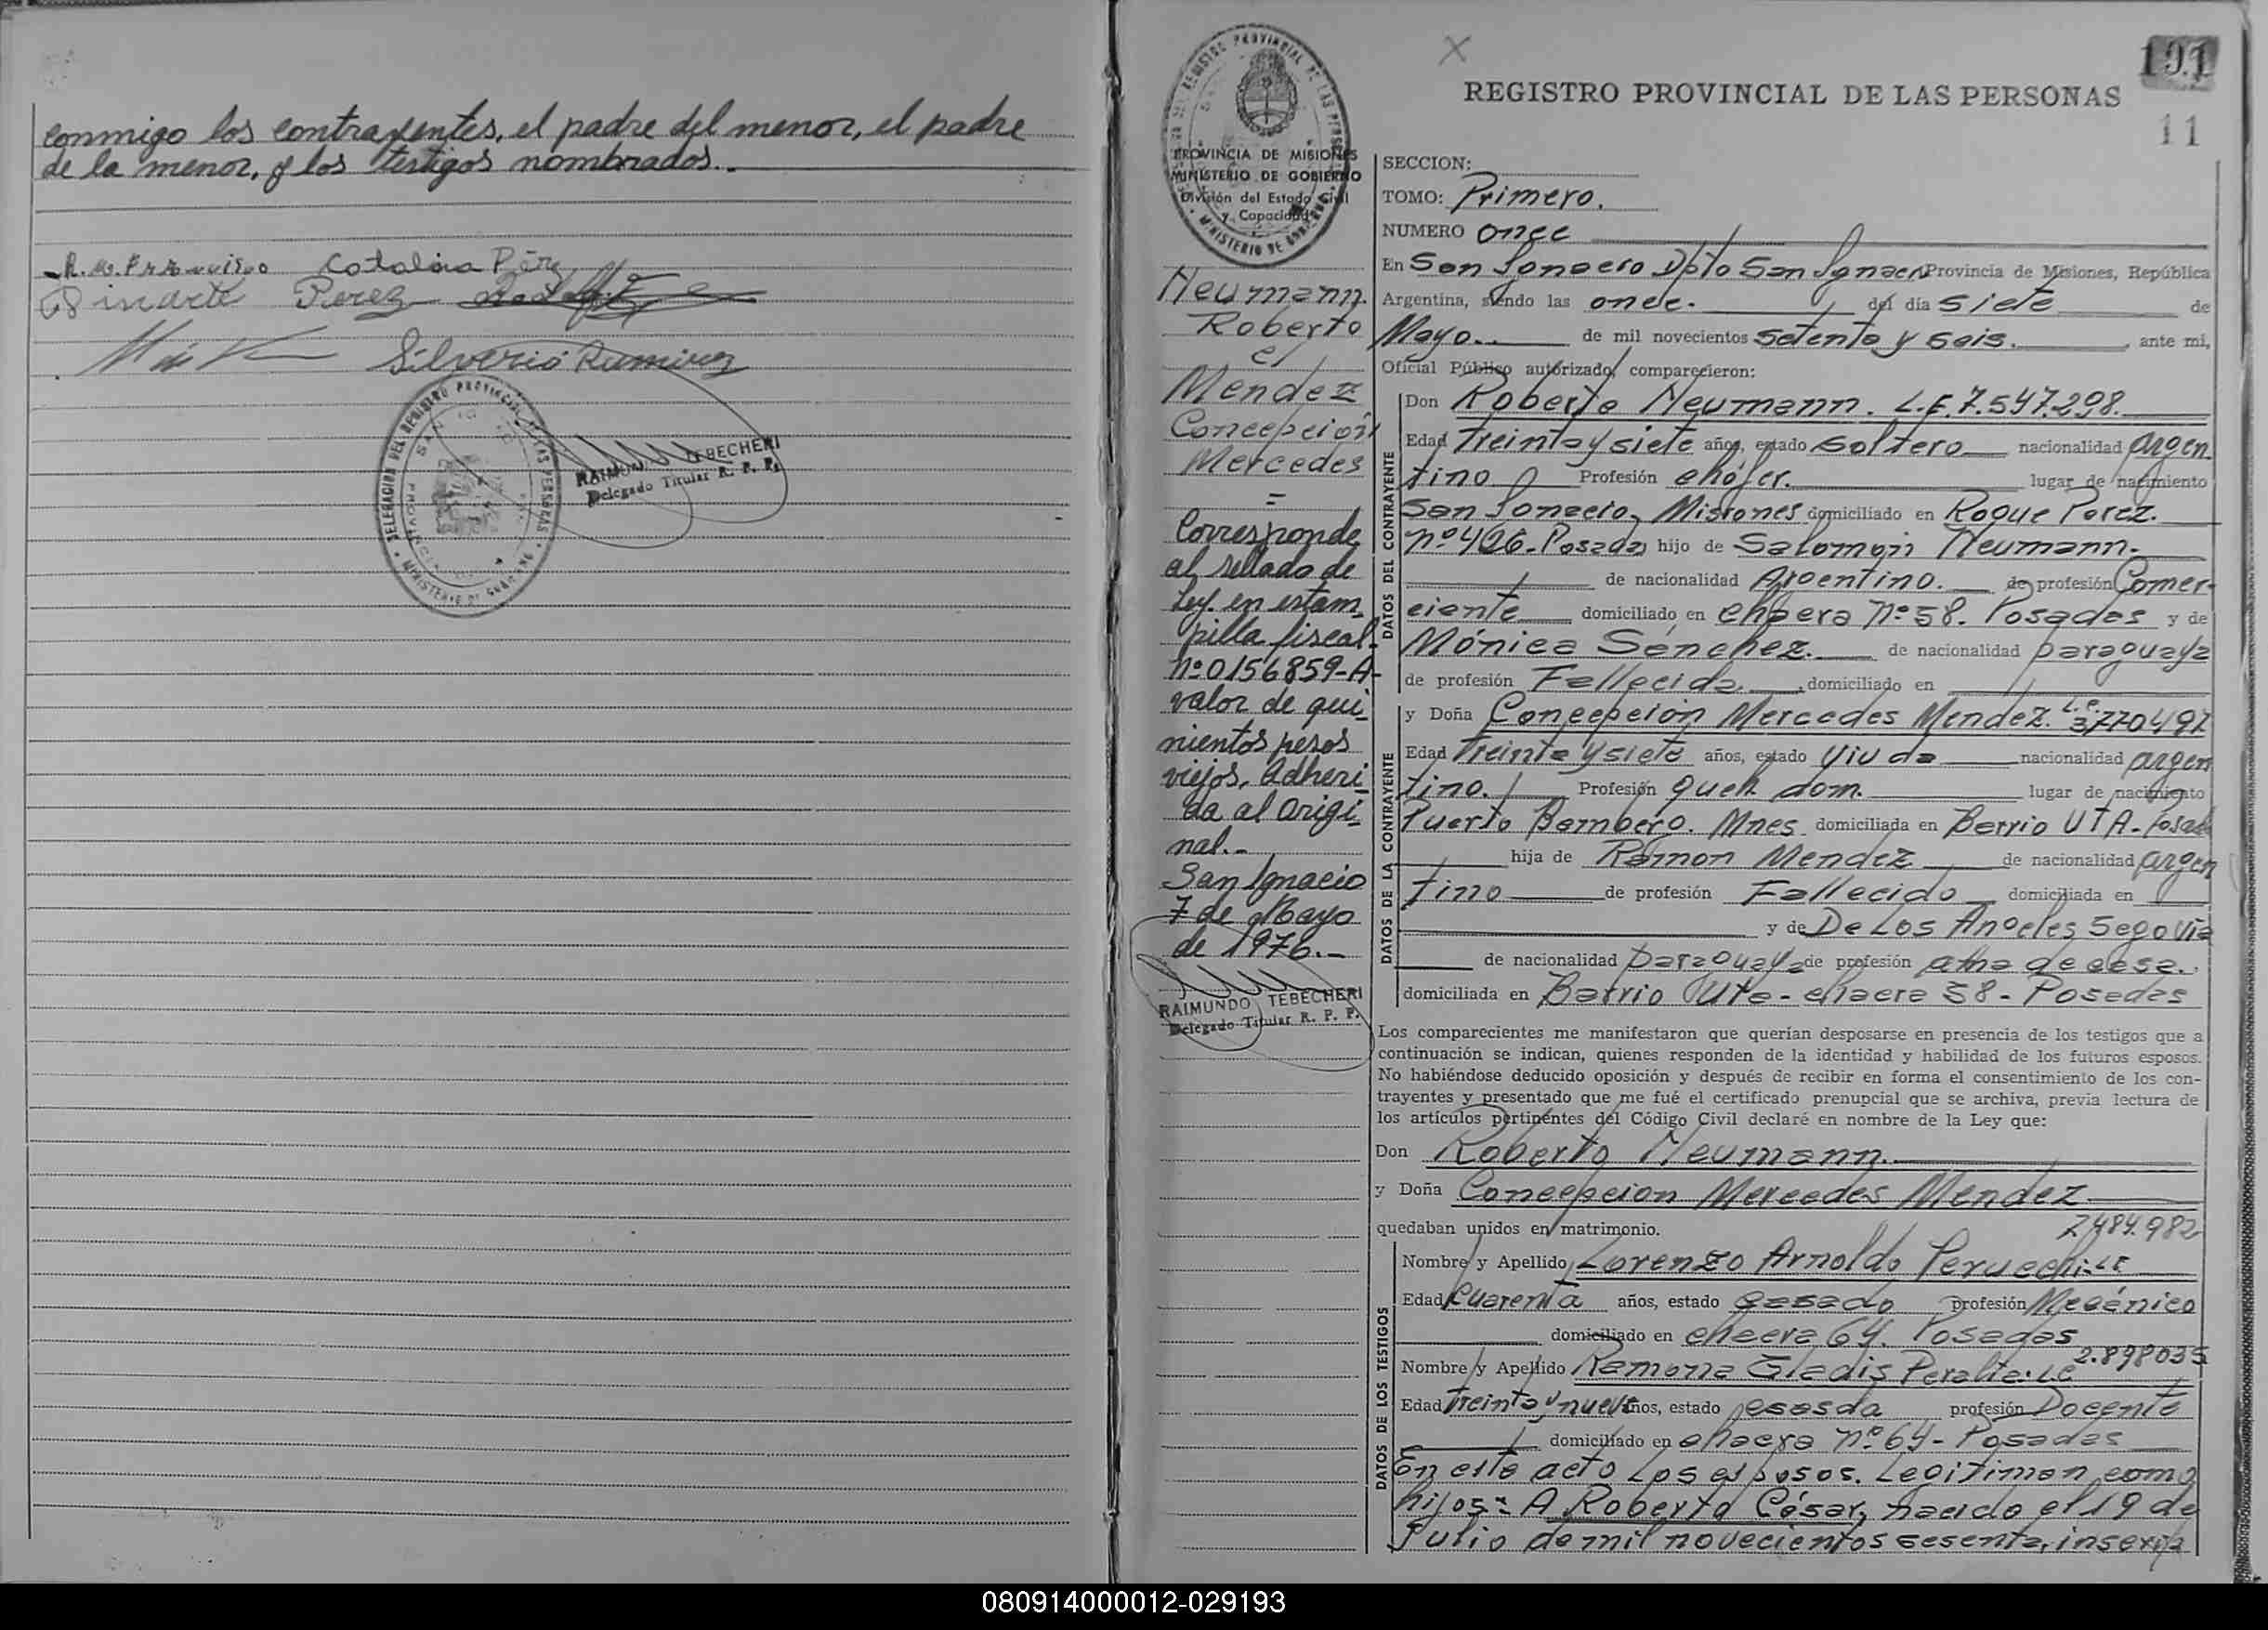 conmigo los contrayentes, el padre del menor, el padre
de la menor, y los testigos nombrados.-
Catalina Pérez
Perez
Silverio Ramirez
DELEGACION DEL REGISTRO PROVINCIAL DE LAS PERSONAS
MINISTERIO DE GOBIERNO
RAIMUNDO TEBECHERI
Delegado Titular R. P. P.
REGISTRO PROVINCIAL DE LAS PERSONAS
PROVINCIA DE MISIONES
MINISTERIO DE GOBIERNO
División del Estado Civil
y Capacidad
MINISTERIO DE GOBIERNO
Neumann
Roberto
c/
Mendez
Concepción
Mercedes
=
Corresponde
al sellado de
Ley. en estam_
pilla fiscal
nº 0156859-A-
valor de qui_
nientos pesos
viejos, Adheri_
da al origi_
nal.-
San Ignacio
7 de Mayo
de 1976.-
RAIMUNDO TEBECHERI
Delegado Titular R. P. P.
191
REGISTRO PROVINCIAL DE LAS PERSONAS
11
SECCION:
TOMO: Primero.
NUMERO once
En San Ignacio Dpto San Ignacio Provincia de Misiones, República
Argentina, siendo las once. del día siete de
Mayo. de mil novecientos setenta y seis. , ante mi,
Oficial Público autorizado, comparecieron:
DATOS DEL CONTRAYENTE
Don Roberto Neumann. L.E. 7.547.298.
Edad Treinta y siete años, estado soltero nacionalidad argen
tino Profesión chófer. lugar de nacimiento
San Ignacio, Misiones domiciliado en Roque Perez.
nº 426. Posadas hijo de Salomón Neumann.
de nacionalidad Argentino. de profesión Comer-
ciante domiciliado en chacra nº 58. Posadas y de
Mónica Sánchez. de nacionalidad paraguaya
de profesión Fallecida. , domiciliado en
DATOS DE LA CONTRAYENTE
y Doña Concepción Mercedes Mendez. L.C. 3770497
Edad Treinta y siete años, estado viuda nacionalidad argen
tino. Profesión queh. dom. lugar de nacimiento
Puerto Bemberg. Mnes. domiciliada en Barrio UTA - Posad
hija de Ramon Mendez de nacionalidad argen
tino de profesión Fallecido domiciliada en
y de De Los Angeles Segovia
de nacionalidad paraguaya de profesión ama de casa.
domiciliada en Barrio Uta - chacra 58 - Posadas
Los comparecientes me manifestaron que querían desposarse en presencia de los testigos que a
continuación se indican, quienes responden de la identidad y habilidad de los futuros esposos.
No habiéndose deducido oposición y después de recibir en forma el consentimiento de los con-
trayentes y presentado que me fué el certificado prenupcial que se archiva, previa lectura de
los artículos pertinentes del Código Civil declaré en nombre de la Ley que:
Don Roberto Neumann.
y Doña Concepcion Mercedes Mendez
quedaban unidos en matrimonio.
7.484.982
DATOS DE LOS TESTIGOS
Nombre y Apellido Lorenzo Arnoldo Perucchi. LE
Edad Cuarenta años, estado casado profesión Mecánico
domiciliado en chacra 64. Posadas
2.898035
Nombre y Apellido Ramona Gladis Peralta. LC
Edad Treinta y nueve años, estado casada profesión Docente
domiciliado en chacra nº 64 - Posadas
En este acto Los esposos. Legitiman como
hijos: A Roberto César, nacido el 19 de
Julio de mil novecientos sesenta, inscrip
080914000012-029193